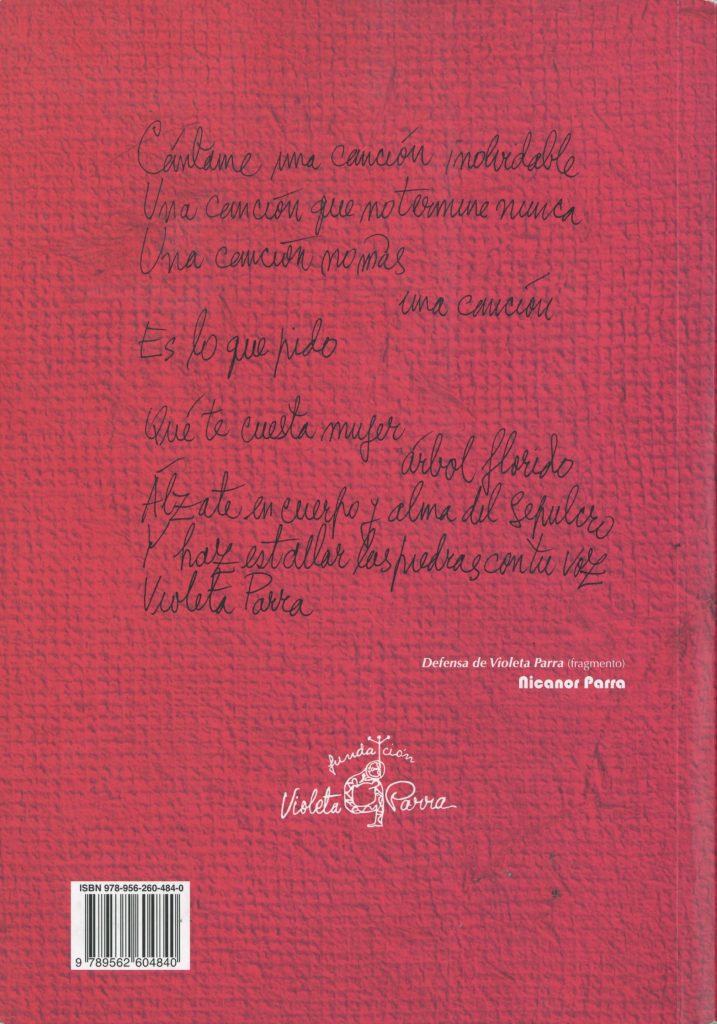 Cántame una canción inolvidable
Una canción que no termine nunca
Una canción no más
una canción
Es lo que pido
Qué te cuesta mujer
árbol florido
Álzate en cuerpo y alma del sepulcro
Y haz estallar las piedras con tu voz
Violeta Parra
Defensa de Violeta Parra (fragmento)
Nicanor Parra
fundación
Violeta Parra
ISBN 978-956-260-484-0
9 789562 604840